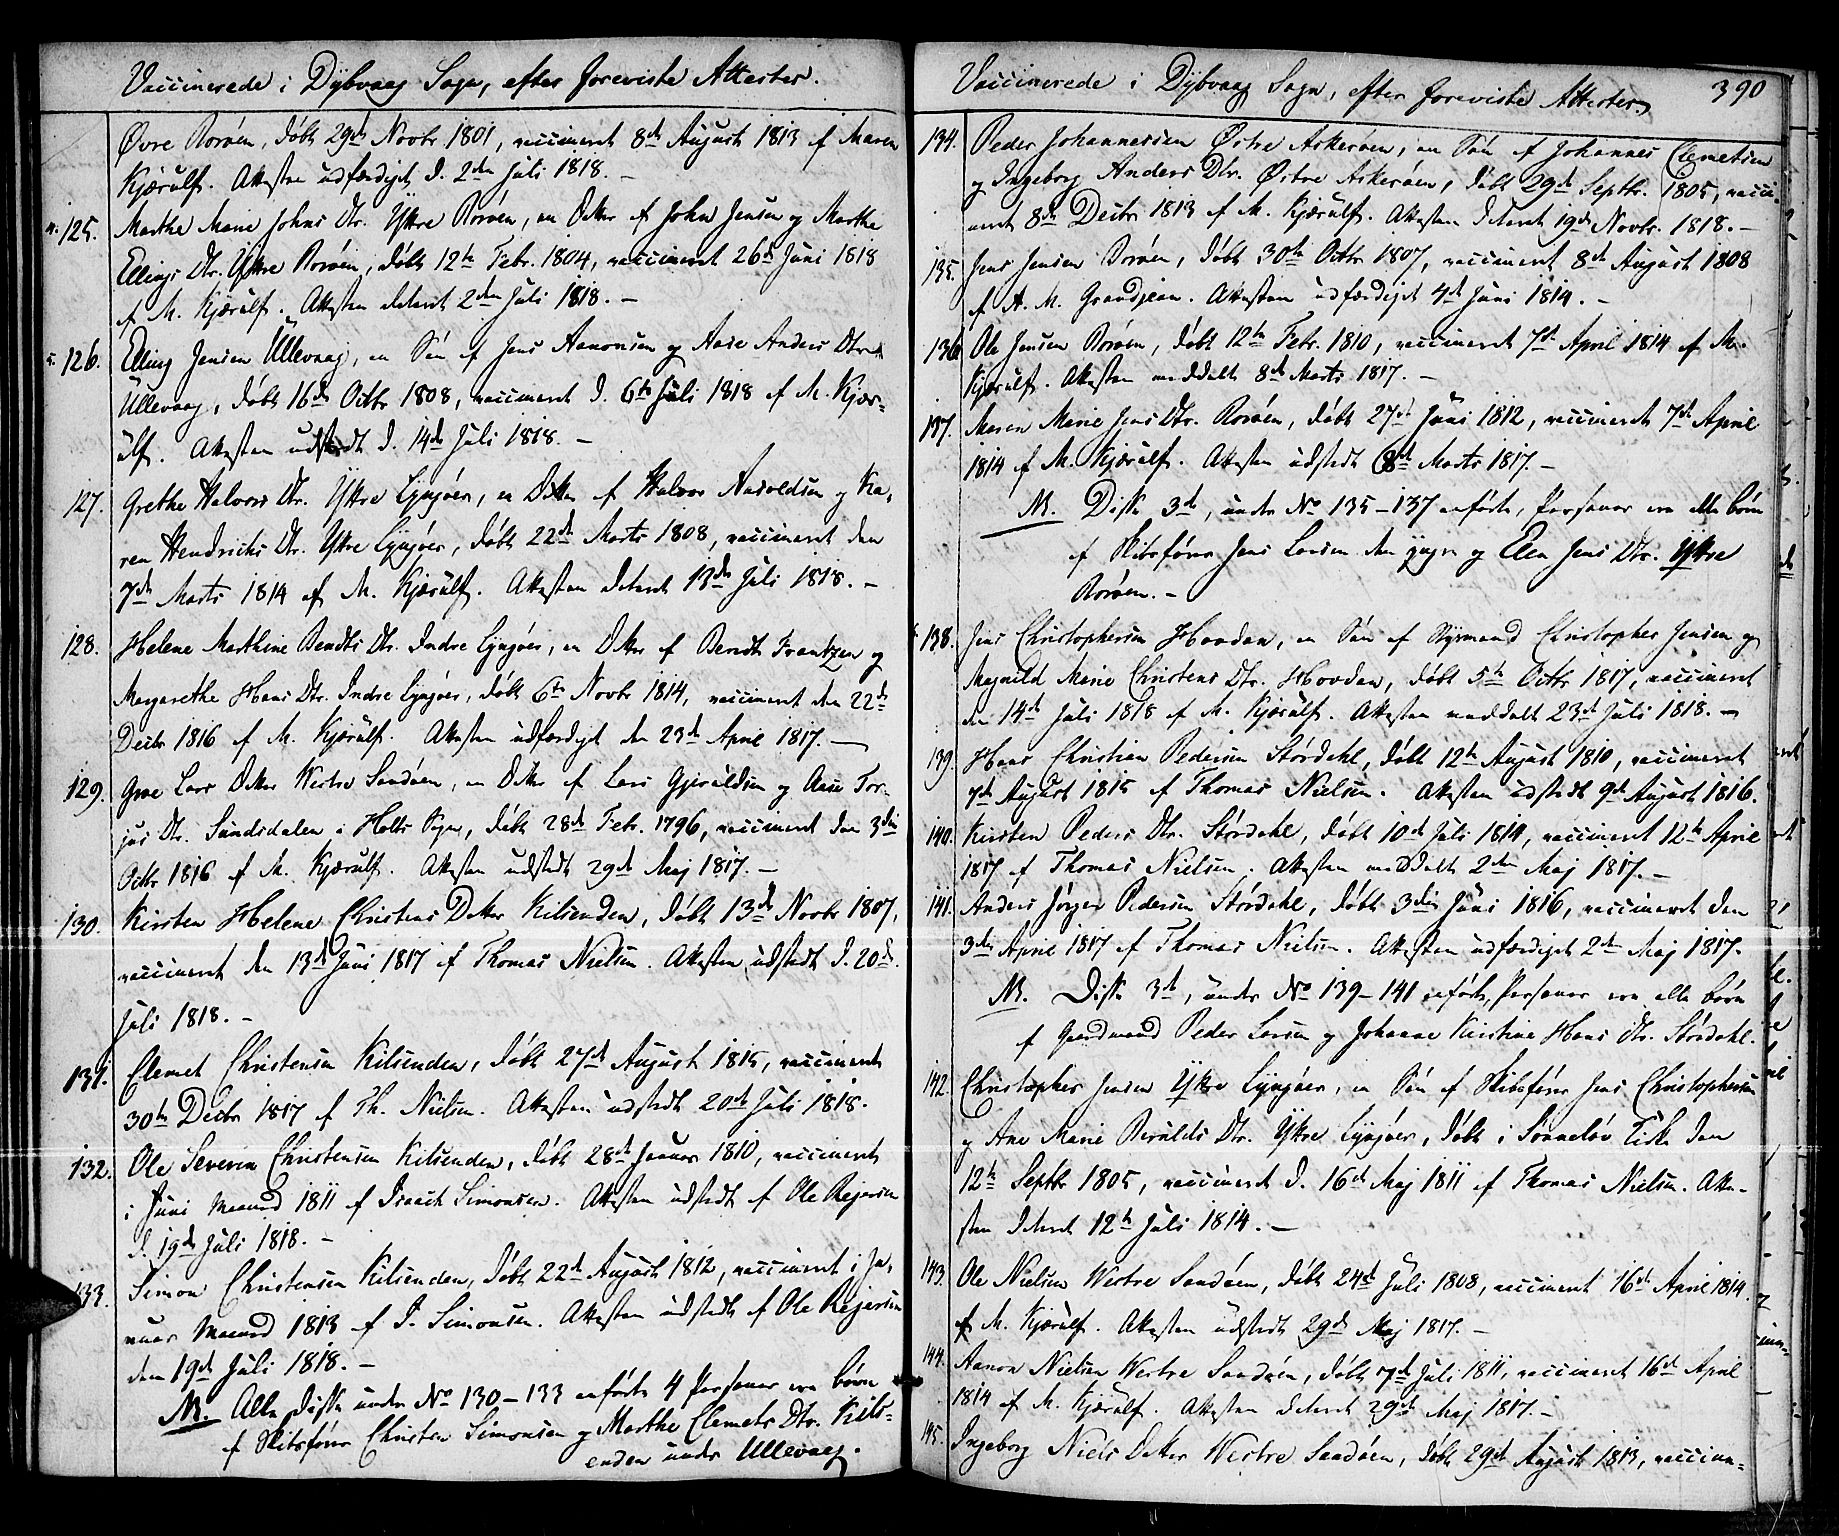 Vaccinerede i Dybvaag Sogn, efter foreviste Attester.
Øvre Borøen, døbt 29de Novbr 1801, vaccineret 8de August 1813 af Maren
Kjærülf. Attesten udfærdiget d. 2den Juli 1818. –
125. Marthe Marie Johns Dtr. Ÿttre Borøen, en Dtter af John Jensen og Marthe
Ellings Dtr. Ÿttre Borøen, døbt 12te Febr. 1804, vaccineret 26de Juni 1818
af M. Kjærülf. Attesten dateret 2den Juli 1818. –
126. Elling Jensen Üllevaag, en Søn af Jens Aanonsen og Aase Anders Dtr
Üllevaag, døbt 16de Octbr 1808, vaccineret d. 6te Juli 1818 af M. Kjær-
ülf. Attesten udstædt d. 14de Juli 1818. –
127. Grethe Halvors Dtr. Ÿttre Lÿngøer, en Datter af Halvor Aasvoldsen og Ka-
ren Hendrichs Dtr. Ÿttre Lÿngøer, døbt 22de Marts 1808, vaccineret den
7de Marts 1814 af M. Kjærülf. Attesten dateret 13de Juli 1818. –
128. Helene Marthine Bendts Dtr. Indre Lÿngøer, en Dtter af Bendt Frantzen og
Margarethe Hans Dtr. Indre Lÿngøer, døbt 6te Novbr 1814, vaccineret den 22de
Decbr 1816 af M. Kjærülf. Attesten udfærdiget den 23de April 1817. –
129. Groe Lars Datter Westre Sandøen, en Datter af Lars Gjeruldsen og Aase Tor-
jus Dtr. Sundsdalen i Holts Sogn, døbt 28de Febr. 1796, vaccineret den 3die
Octbr 1816 af M. Kjærulf. Attesten udstædt 29de Maj 1817. –
130. Kirsten Helene Christens Datter Kilsenden, døbt 13de Novbr 1807,
vaccineret den 13de Juni 1817 af Thomas Nielsen. Attesten udstædt d. 20de
Juli 1818. –
131. Clemet Christensen Kilsenden, døbt 27de August 1815, vaccineret
30te Decbr 1817 af Th. Nielsen. Attesten udstædt 20de Juli 1818.
132. Ole Severin Christensen Kilsenden, døbt 28de Januar 1810, vaccineret
i Juni Maaned 1811 af Isaach Simonsen. Attesten udstædt af Ole Rejersen
d. 19de Juli 1818. –
133. Simon Christensen Kilsenden, døbt 22de August 1812, vaccineret i Ja-
nuar Maaned 1813 af I. Simonsen. Attesten udstædt af Ole Rejersen
den 19de Juli 1818. –
NB. Alle disse under No 130–133 anførte 4 Personer ere børn
af Skibsfører Christen Simonsen og Marthe Clemets Dtr. Kils-
enden under Ullevaag.
Vaccinerede i Dÿbvaag Sogn, efter foreviste Attester. 390
134. Peder Johannessen Østre Askerøen, en Søn af Johannes Clemetsen
og Ingeborg Anders Dtr. Østre Askerøen, døbt 29de Septbr. 1805, vacci-
neret 8de Decbr 1813 af M. Kjærülf. Attesten dateret 19de Novbr. 1818. –
135. Jens Jensen Borøen, døbt 30te Octbr 1807, vaccineret 8de August 1808
af A. M. Grandjean. Attesten udfærdiget 4de Juni 1814. –
136. Ole Jensen Borøen, døbt 12te Febr. 1810, vaccineret 7de April 1814 af M.
Kjærülf. Attesten meddelt 8de Marts 1817. –
137. Maren Marie Jens Dtr. Borøen, døbt 27de Juni 1812, vaccineret 7de April
1814 af M. Kjærülf. Attesten udstædt 8de Marts 1817. –
NB. Disse 3de, under No 135–137 anførte, Personer ere alle børn
af Skibsfører Jens Larsen den yngre og Elen Jens Dtr. Ÿttre
Borøen. –
138. Jens Christophersen Hovdan, en Søn af Styrmand Christopher Jensen og
Magnild Marie Christens Dtr. Hovdan, døbt 5te Octbr 1817, vaccineret
den 14de Juli 1818 af M. Kjærülf. Attesten meddelt 23de Juli 1818. –
139. Hans Christian Pedersen Stórdahl, døbt 12te August 1810, vaccineret
7de August 1815 af Thomas Nielsen. Attesten udstædt 9de August 1816.
140. Kirsten Peders Dtr. Stórdahl, døbt 10de Juli 1814, vaccineret 12te April
1817 af Thomas Nielsen. Attesten meddelt 2den Maj 1817. –
141. Anders Jørgen Pedersen Stórdahl, døbt 3die Juni 1816, vaccineret den
3die April 1817 af Thomas Nielsen. Attesten udfærdiget 2de Maj 1817.
NB. Disse 3de, under No 139–141 anførte, Personer ere alle børn
af Gaardmand Peder Larsen og Johanne Kirstine Hans Dtr. Stórdahl.
142. Christopher Jensen Ÿttre Lÿngøer, en Søn af Skibsfører Jens Christophersen
og Ane Marie Berulds Dtr. Ÿttre Lÿngøer, døbt i Sønneløv Kirke den
12te Septbr 1805, vaccineret d. 16de Maj 1811 af Thomas Nielsen. Atte-
sten dateret 12te Juli 1814. –
143. Ole Nielsen Westre Sandøen, døbt 24de Juli 1808, vaccineret 16de April 1814
af M. Kjærülf. Attesten udstædt 29de Maj 1817. –
144. Aanon Nielsen Westre Sandøen, døbt 7de Juli 1811, vaccineret 16de April
1814 af M. Kjærülf. Attesten dateret 29de Maj 1817. –
145. Ingeborg Niels Datter Westre Sandøen, døbt 29de August 1813, vaccine-